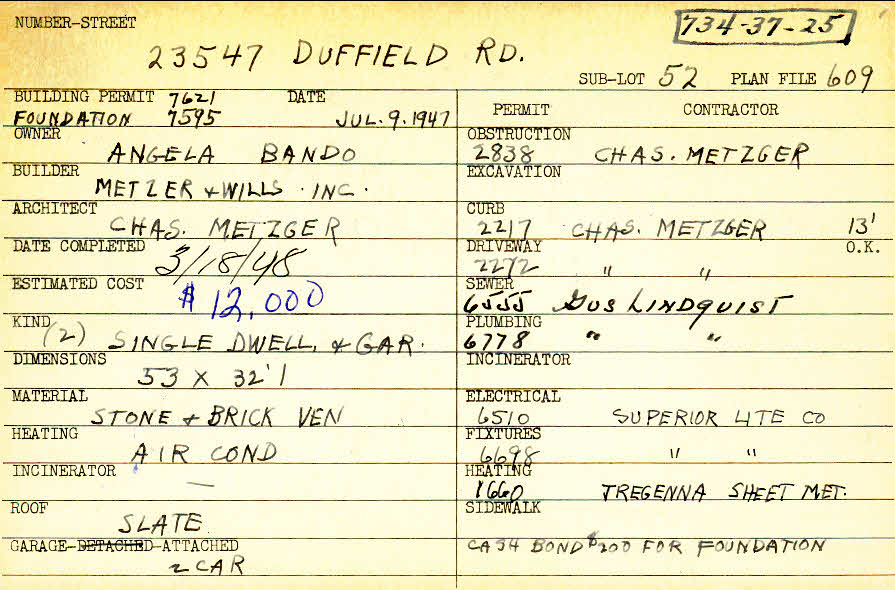 NUMBER-STREET
734-37-25
23547 DUFFIELD RD.
SUB-LOT 52 PLAN FILE 609
BUILDING PERMIT 7621 DATE
FOUNDATION 7595 JUL. 9. 1947
OWNER
ANGELA BANDO
BUILDER
METZER + WILLS . INC.
ARCHITECT
CHAS. METZGER
DATE COMPLETED
3/18/48
ESTIMATED COST
$12,000
KIND
(2) SINGLE DWELL. & GAR.
DIMENSIONS
53 X 32'1
MATERIAL
STONE + BRICK VEN
HEATING
AIR COND
INCINERATOR
—
ROOF
SLATE.
GARAGE-DETACHED-ATTACHED
2 CAR
PERMIT CONTRACTOR
OBSTRUCTION
2838 CHAS. METZGER
EXCAVATION
CURB
2217 CHAS. METZGER 13'
DRIVEWAY O.K.
2272 " "
SEWER
6555 GUS LINDQUIST
PLUMBING
6778 " "
INCINERATOR
ELECTRICAL
6510 SUPERIOR LITE CO
FIXTURES
6698 " "
HEATING
1660 TREGENNA SHEET MET.
SIDEWALK
CASH BOND $200 FOR FOUNDATION